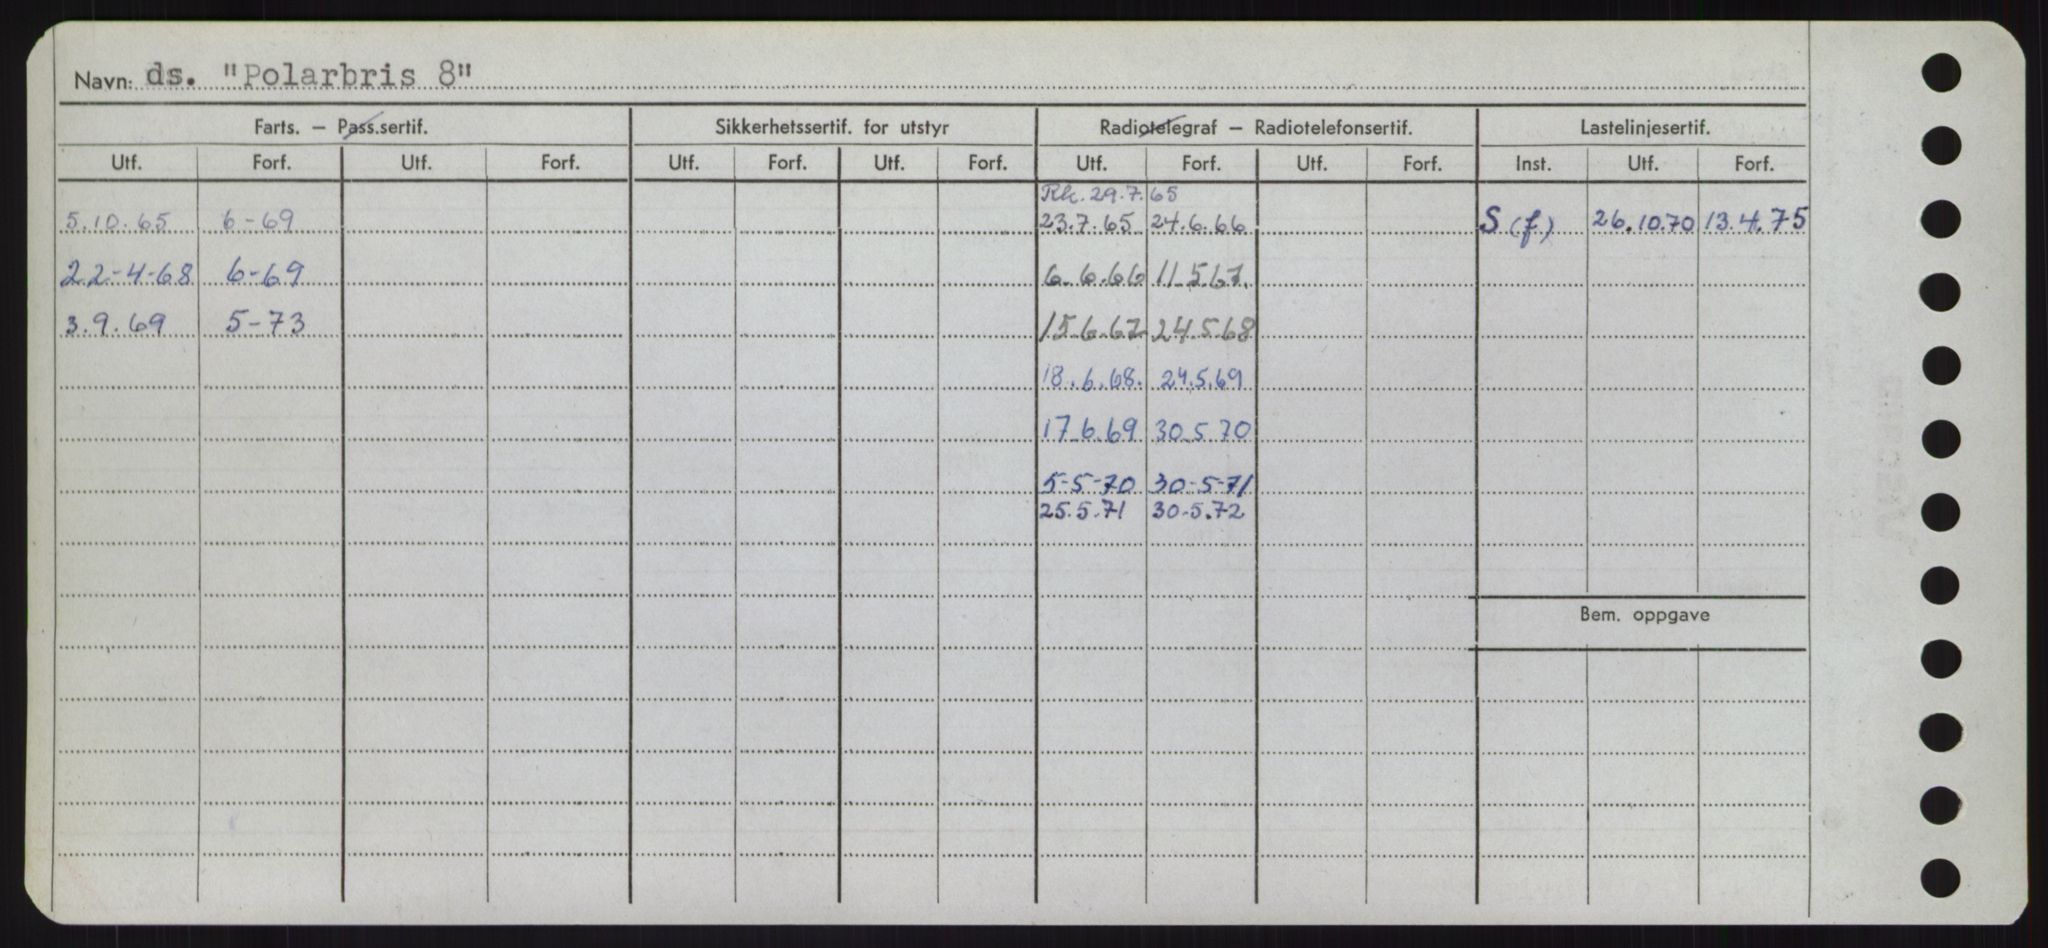 Navn: ds. "Polarbris 8"
Farts. — Pass.sertif. Sikkerhetssertif. for utstyr Radiotelegraf — Radiotelefonsertif. Lastelinjesertif.
Utf. Forf. Utf. Forf. Utf. Forf. Utf. Forf. Utf. Forf. Utf. Forf. Inst. Utf. Forf.
Rk. 29.7.65
5.10.65 6-69 23.7.65 24.6.66 S (f) 26.10.70 13.4.75
22-4-68 6-69 6.6.66 11.5.67.
3.9.69 5-73 15.6.67 24.5.68
18.6.68. 24.5.69
17.6.69 30.5.70
5-5-70 30-5-71
25.5.71 30.5.72
Bem. oppgave